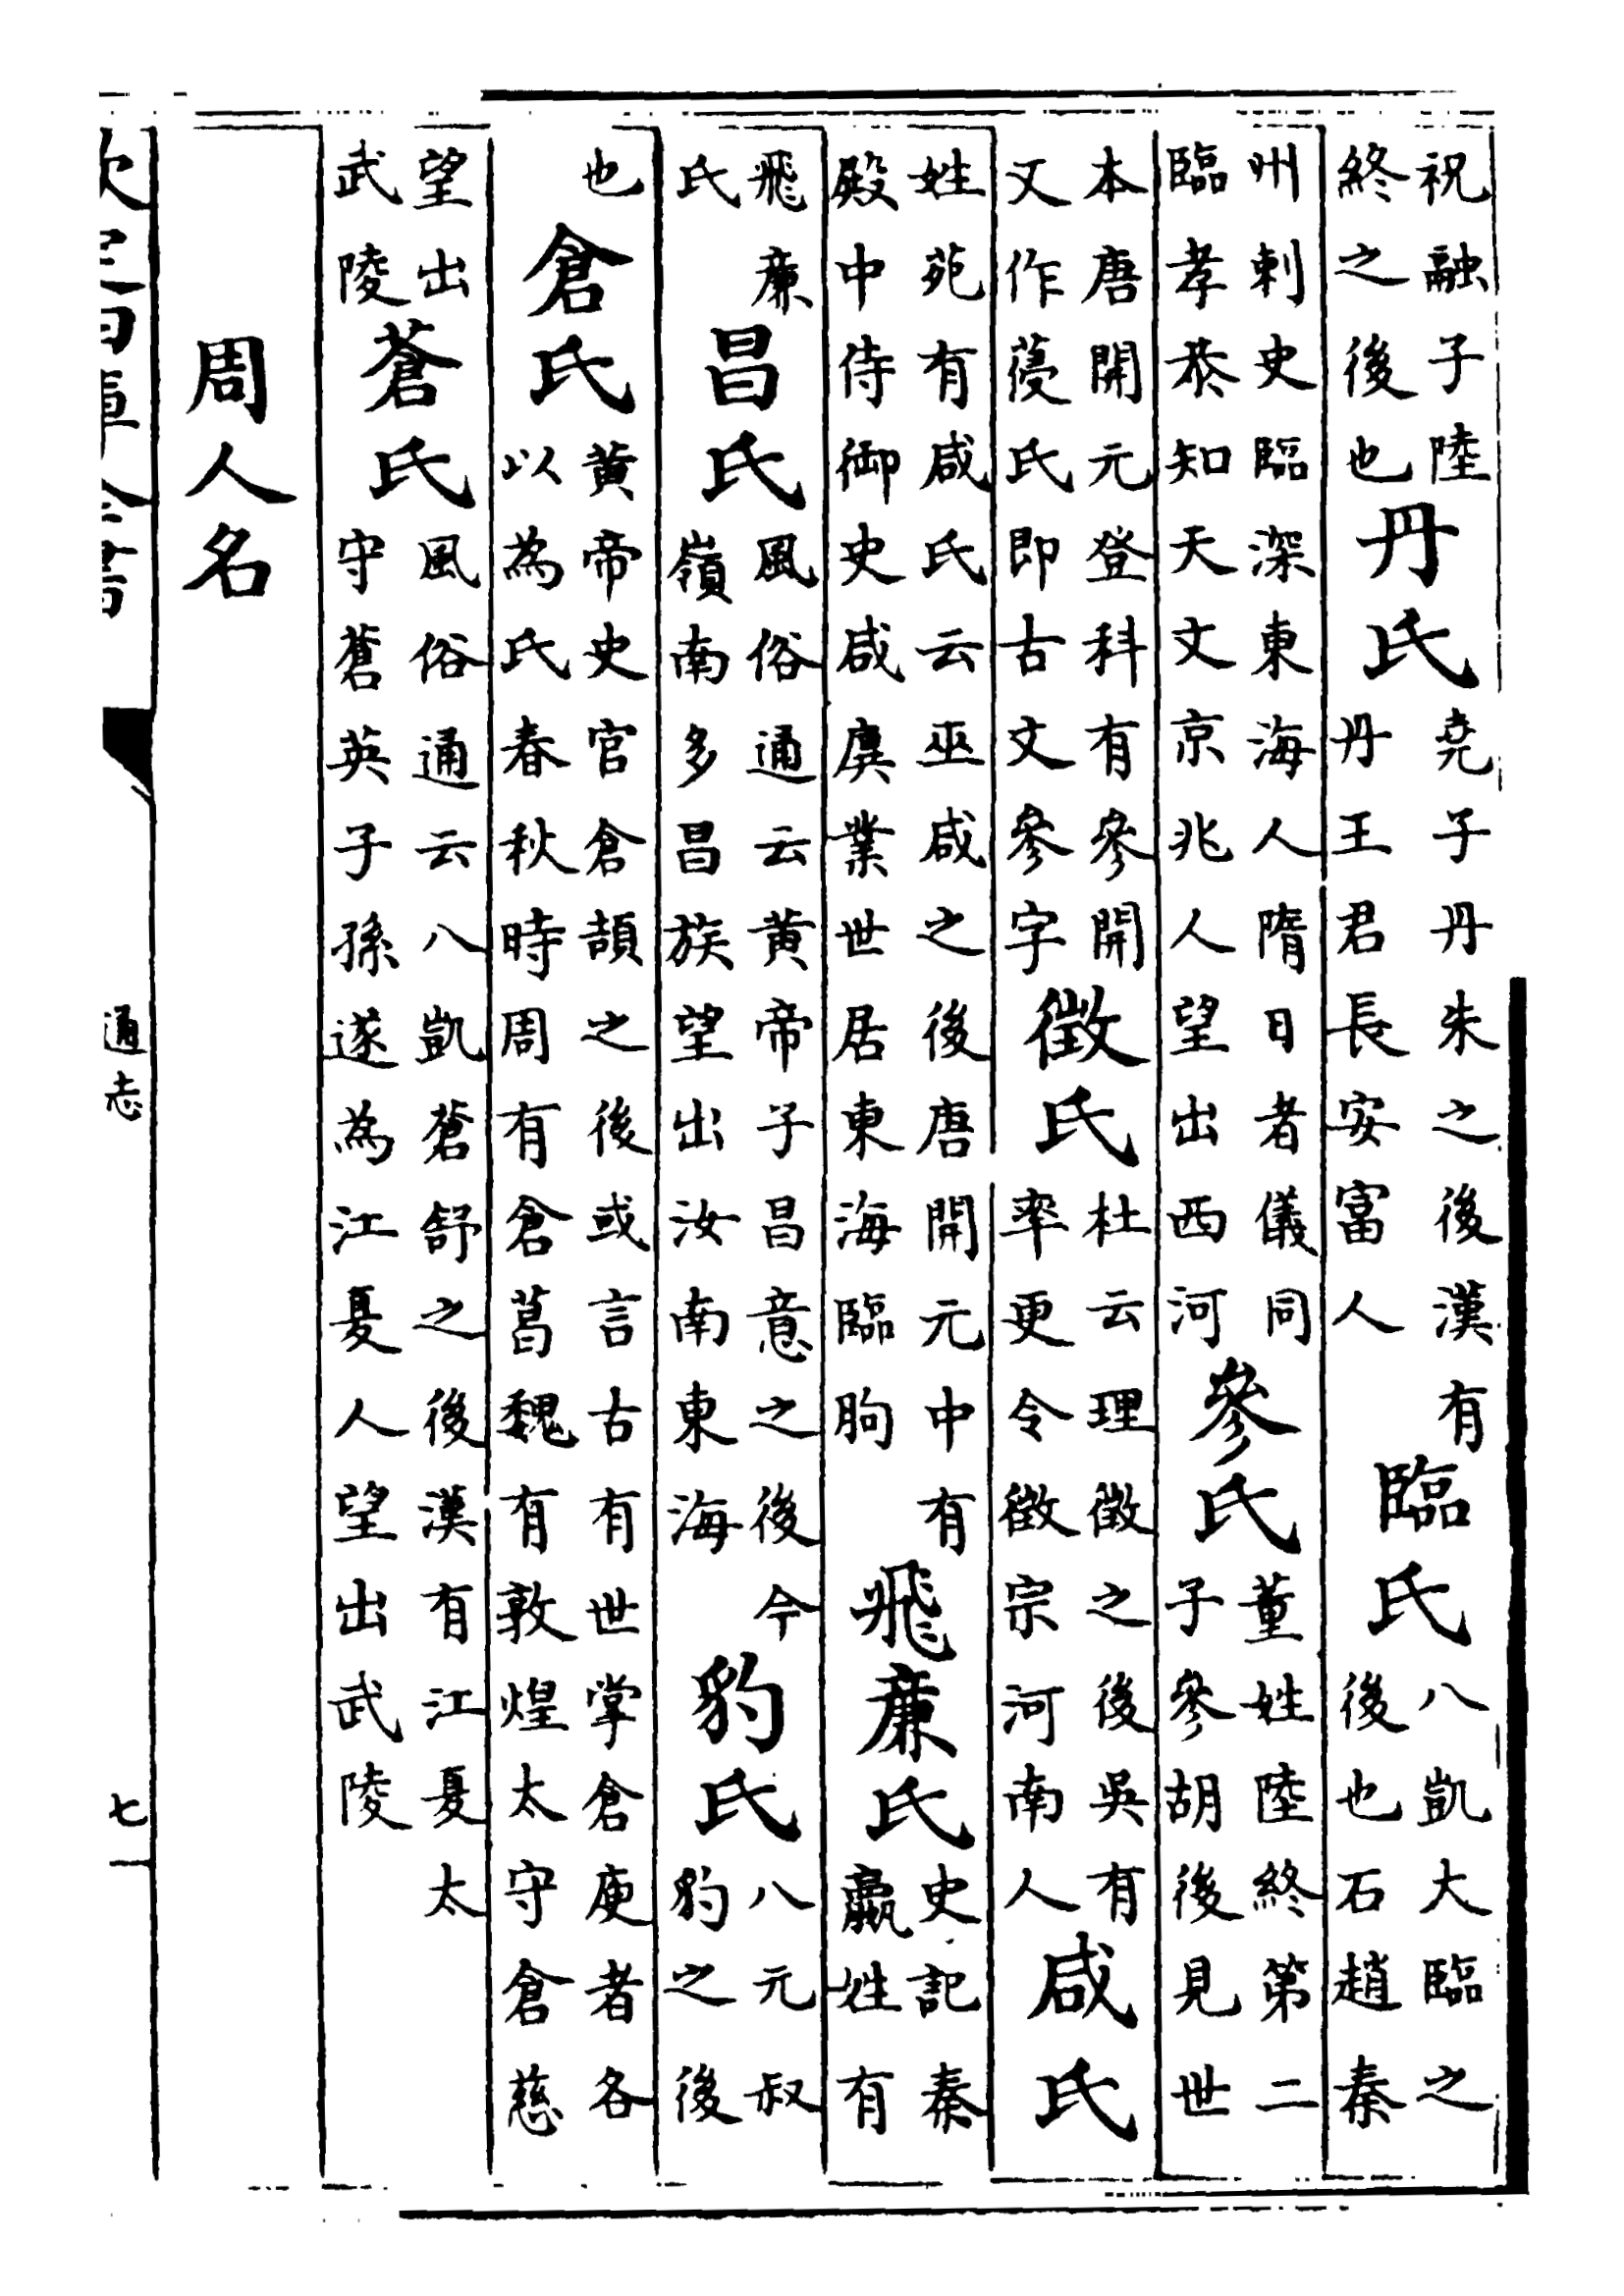 祝融子陸終之後也丹氏堯子丹朱之後漢有丹王君長安富人臨氏八凱大臨之後也石趙秦
州刺史臨深東海人隋日者儀同臨孝恭知天文京兆人望出西河參氏董姓陸終第二子參胡後見世
本唐開元登科有參開又作葠氏即古文參字徵氏杜云理徵之後吳有率更令徵宗河南人咸氏
姓苑有咸氏云巫咸之後唐開元中有殿中侍御史咸廙業世居東海臨朐飛廉氏史記秦嬴姓有
飛廉氏昌氏風俗通云黄帝子昌意之後今嶺南多昌族望出汝南東海豹氏八元叔豹之後
也倉氏黄帝史官倉頡之後或言古有世掌倉庾者各以為氏春秋時周有倉葛魏有敦煌太守倉慈
望出武陵蒼氏風俗通云八凱蒼舒之後漢有江夏太守蒼英子孫遂為江夏人望出武陵
周人名
欽定四庫全書 通志 七